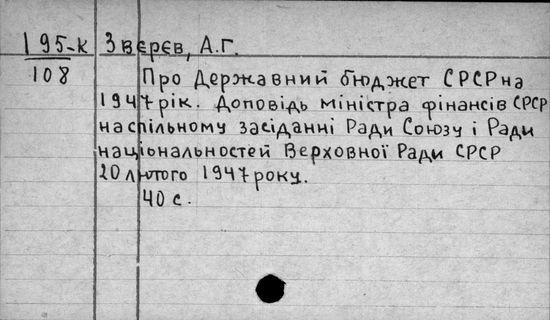 195-к Звєрєв, А.Г.
108
Про Державний бюджет СРСР на
1947 рік. Доповідь міністра фінансів СРСР
на спільному засіданні Ради Союзу і Ради
національностей Верховної Ради СРСР
20 лютого 1947 року.
40 с.